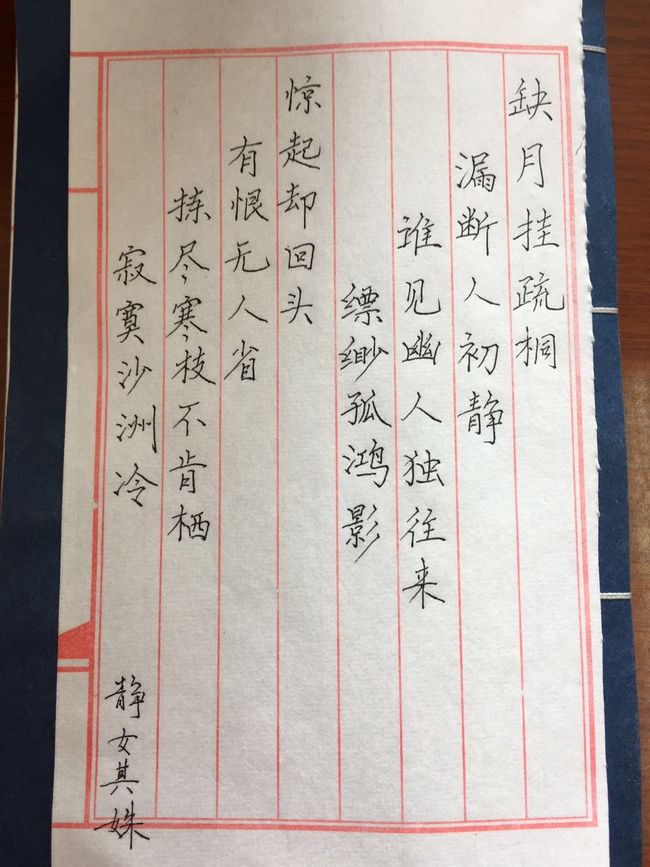 缺月挂疏桐
漏断人初静
谁见幽人独往来
缥缈孤鸿影
惊起却回头
有恨无人省
拣尽寒枝不肯栖
寂寞沙洲冷
静女其姝